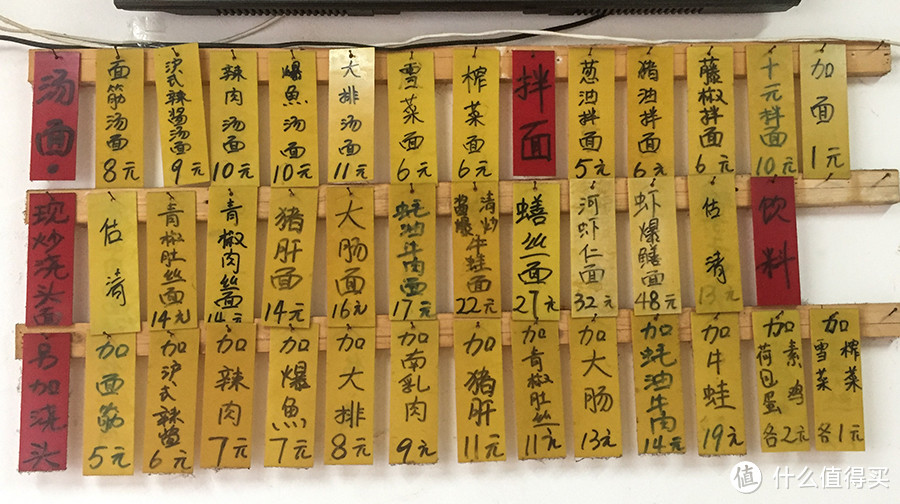 汤面
面筋汤面 8元
沪式辣酱汤面 9元
辣肉汤面 10元
爆鱼汤面 10元
大排汤面 11元
雪菜面 6元
榨菜面 6元
拌面
葱油拌面 5元
猪油拌面 6元
藤椒拌面 6元
十元拌面 10元
加面 1元
现炒浇头面
估清
青椒肚丝面 14元
青椒肉丝面 14元
猪肝面 14元
大肠面 16元
蚝油牛肉面 17元
酱爆 清炒 牛蛙面 22元
鳝丝面 27元
河虾仁面 32元
虾爆鳝面 48元
估清 13元
饮料
另加浇头
加面筋 5元
加沪式辣酱 6元
加辣肉 7元
加爆鱼 7元
加大排 8元
加南乳肉 9元
加猪肝 11元
加青椒肚丝 11元
加大肠 13元
加蚝油牛肉 14元
加牛蛙 19元
加素鸡 荷包蛋 各2元
加榨菜 雪菜 各1元
值 什么值得买